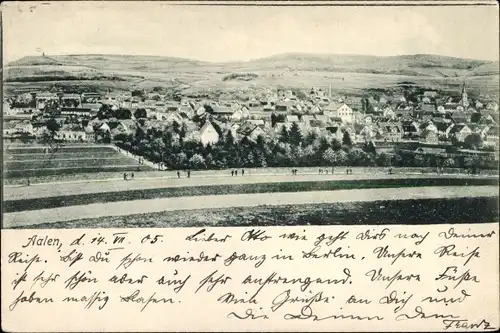 Aalen, d. 14. VII. 05. Lieber Otto wie geht Dir's nach Deiner
Reise. Bist Du schon wieder ganz in Berlin. Unsere Reise
ist sehr schön aber auch sehr anstrengend. Unsere Füße
haben massig Blasen. Viele Grüße an Dich und
Die Deinen Dein